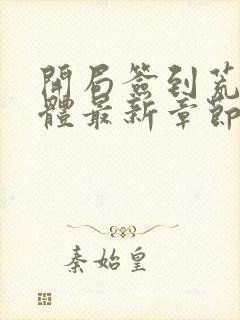 開局簽到荒
體最新章節
秦始皇